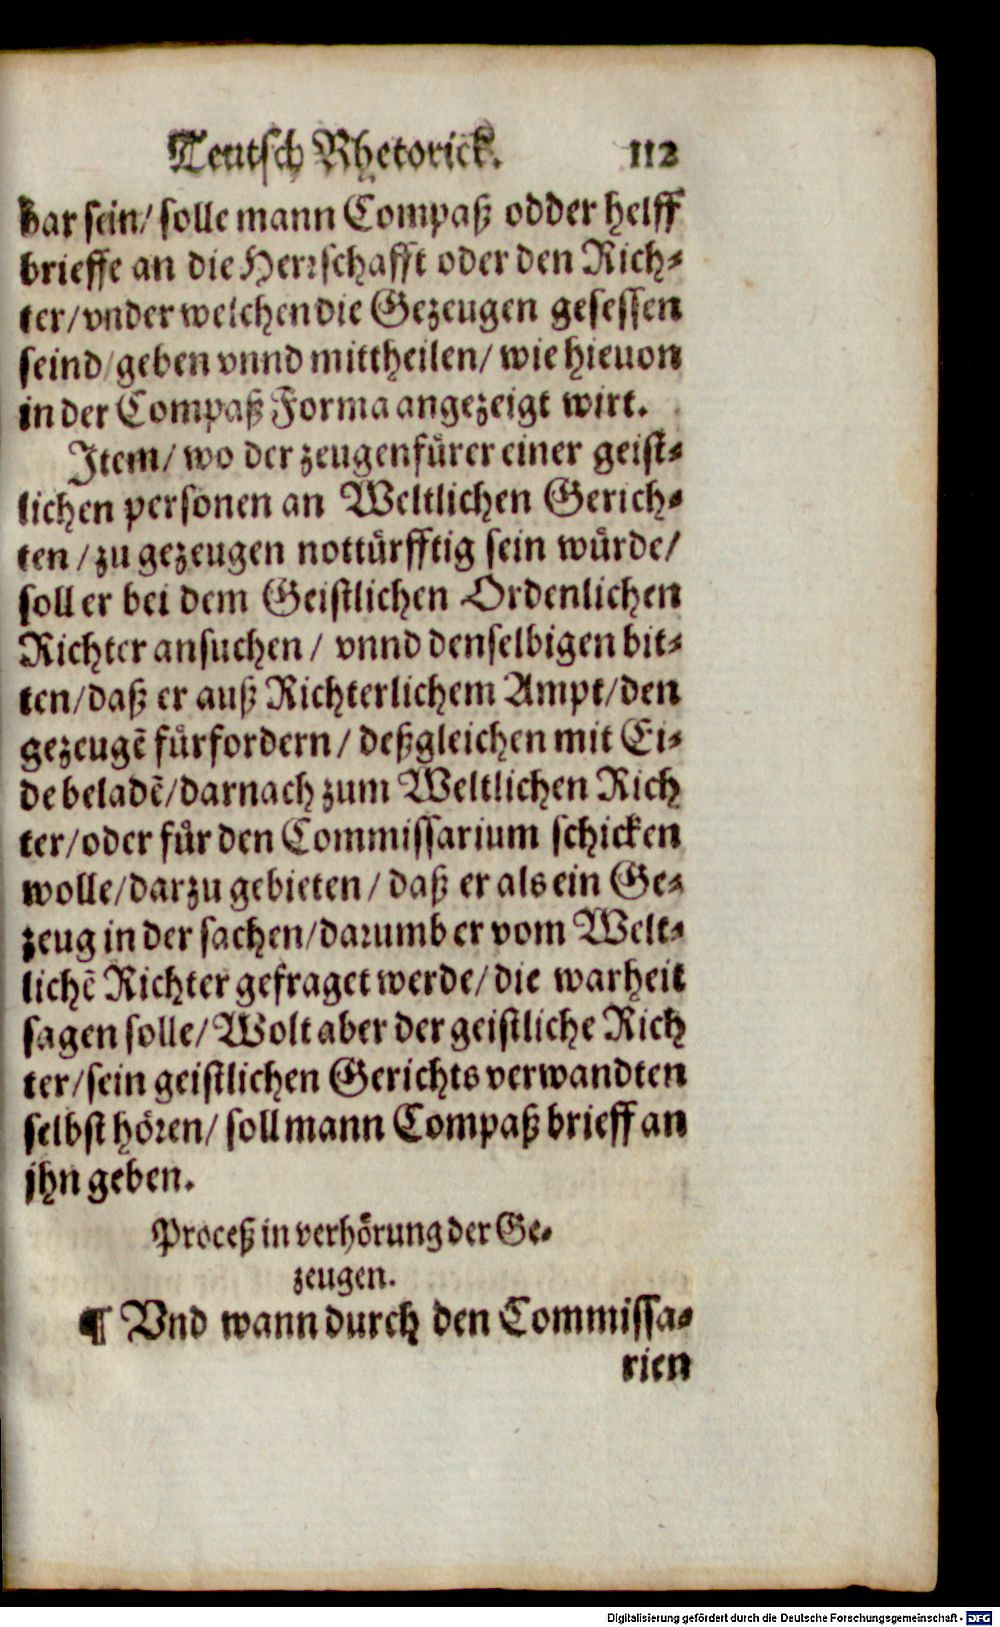 Teutsch Rhetorick. 112
bar sein/ solle mann Compaß odder helff
brieffe an die Herrschafft oder den Rich-
ter/ vnder welchen die Gezeugen gesessen
seind/ geben vnnd mittheilen/ wie hieuon
in der Compaß Forma angezeigt wirt.
Item/ wo der zeugenfürer einer geist-
lichen personen an Weltlichen Gerich-
ten/ zu gezeugen nottürfftig sein würde/
soll er bei dem Geistlichen Ordenlichen
Richter ansuchen/ vnnd denselbigen bit-
ten/ daß er auß Richterlichem Ampt/ den
gezeugē fürfordern/ deßgleichen mit Ei-
de beladē/ darnach zum Weltlichen Rich
ter/ oder für den Commissarium schicken
wolle/ darzu gebieten/ daß er als ein Ge-
zeug in der sachen/ darumb er vom Welt-
lichē Richter gefraget werde/ die warheit
sagen solle/ Wolt aber der geistliche Rich
ter/ sein geistlichen Gerichts verwandten
selbst hören/ soll mann Compaß brieff an
jhn geben.
Proceß in verhörung der Ge-
zeugen.
¶ Vnd wann durch den Commissa-
rien
Digitalisierung gefördert durch die Deutsche Forschungsgemeinschaft - DFG